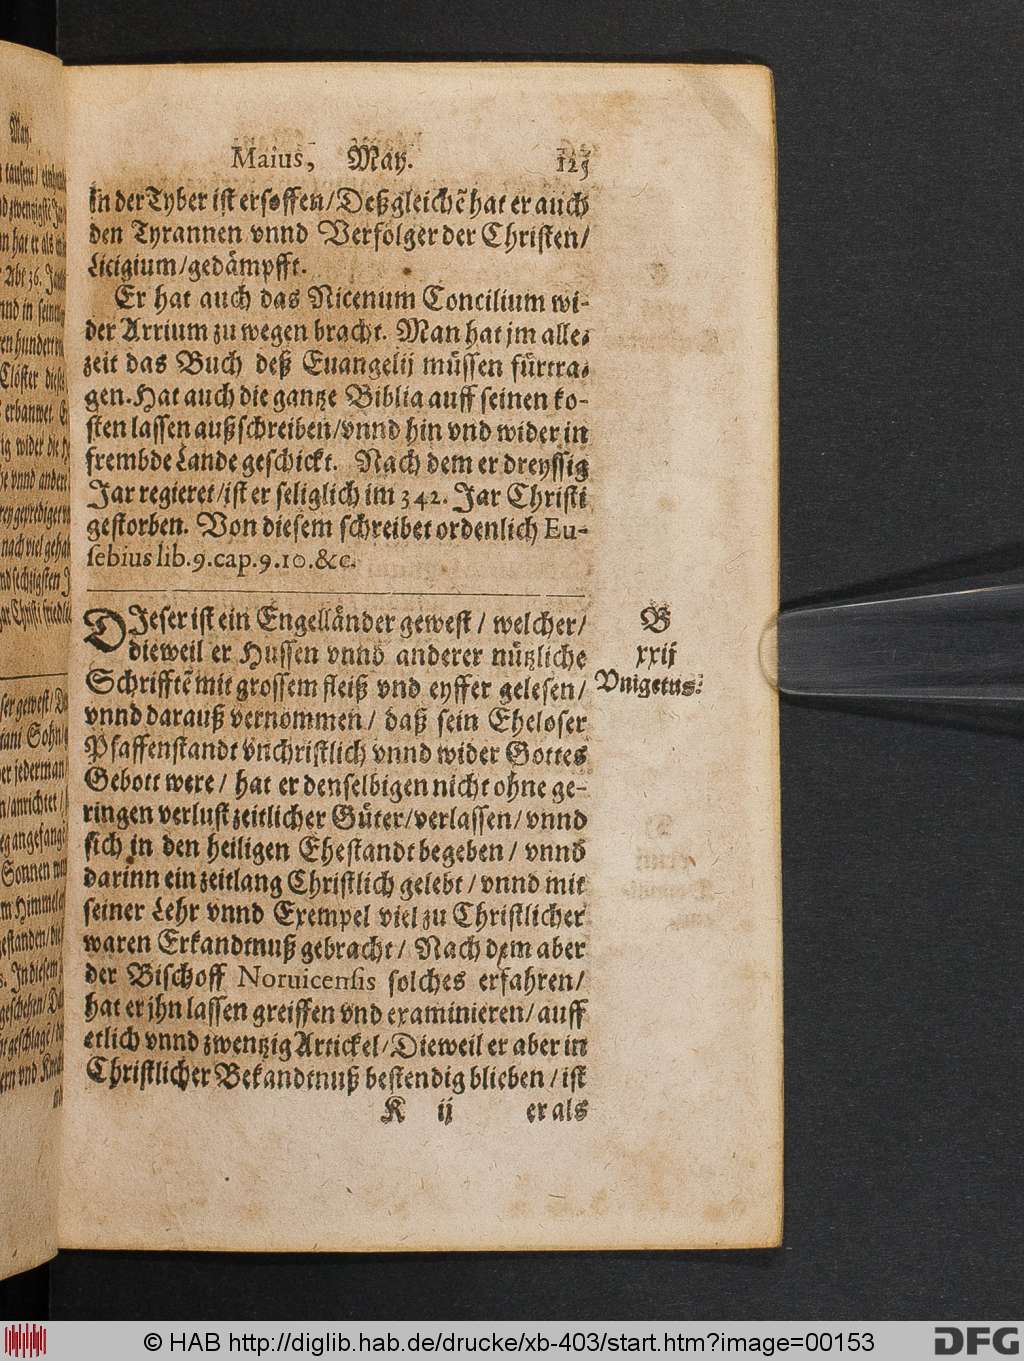 Maius, May. 125
in der Tyber ist ersoffen/Deßgleichẽ hat er auch
den Tyrannen vnnd Verfolger der Christen/
Licigium/gedämpfft.
Er hat auch das Nicenum Concilium wi-
der Arrium zu wegen bracht. Man hat jm alle-
zeit das Buch deß Euangelij müssen fürtra-
gen. Hat auch die gantze Biblia auff seinen ko-
sten lassen außschreiben/vnnd hin vnd wider in
frembde Lande geschickt. Nach dem er dreyssig
Jar regieret/ist er seliglich im 342. Jar Christi
gestorben. Von diesem schreibet ordenlich Eu-
sebius lib.9.cap.9.10.&c.
DJeser ist ein Engelländer gewest / welcher/
dieweil er Hussen vnnd anderer nützliche
Schrifftẽ mit grossem fleiß vnd eyffer gelesen/
vnnd darauß vernommen / daß sein Eheloser
Pfaffenstandt vnchristlich vnnd wider Gottes
Gebott were / hat er denselbigen nicht ohne ge-
ringen verlust zeitlicher Güter/verlassen/ vnnd
sich in den heiligen Ehestandt begeben / vnnd
darinn ein zeitlang Christlich gelebt / vnnd mit
seiner Lehr vnnd Exempel viel zu Christlicher
waren Erkandtnuß gebracht / Nach dem aber
der Bischoff Noruicensis solches erfahren/
hat er jhn lassen greiffen vnd examinieren/ auff
etlich vnnd zwentzig Artickel/Dieweil er aber in
Christlicher Bekandtnuß bestendig blieben / ist
K ij er als
B
xxij
Vnigetus.
© HAB http://diglib.hab.de/drucke/xb-403/start.htm?image=00153
DFG